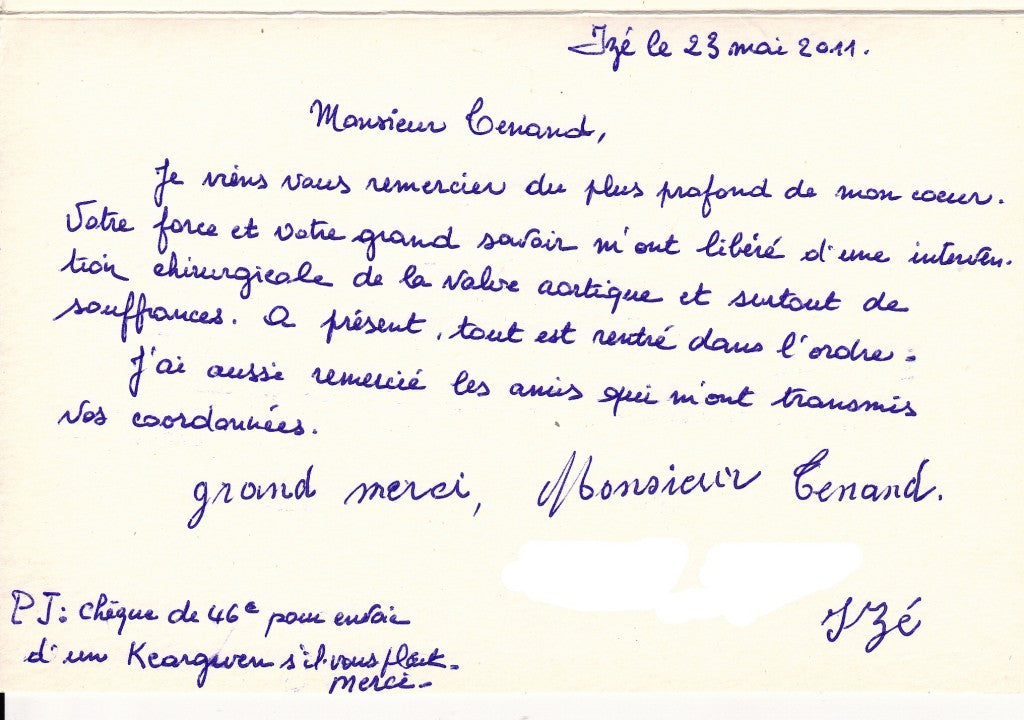 Izé le 23 mai 2011.
Monsieur Cenand,
Je viens vous remercier du plus profond de mon coeur.
Votre force et votre grand savoir m'ont libéré d'une interven-
tion chirurgicale de la valve aortique et surtout de
souffrances. A présent, tout est rentré dans l'ordre.
J'ai aussi remercié les amis qui m'ont transmis
vos coordonnées.
grand merci, Monsieur Cenand.
Izé
PJ: chèque de 46€ pour envoie
d'un Keargwen s'il vous plait.
merci-